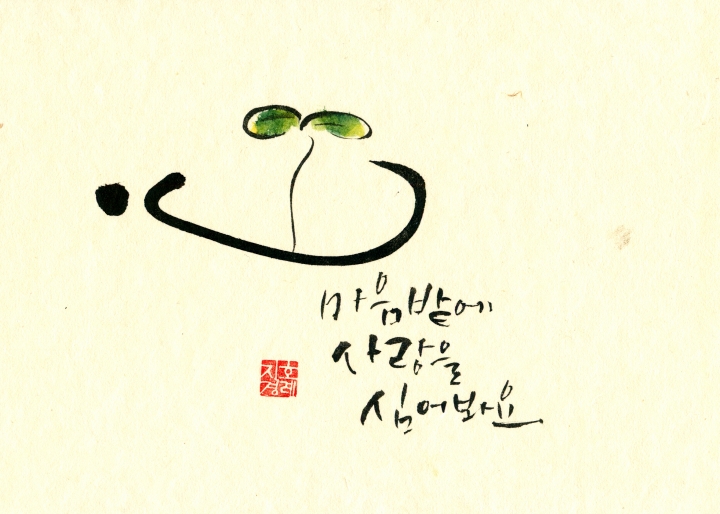 마음밭에
사랑을
심어봐요
지호
경례